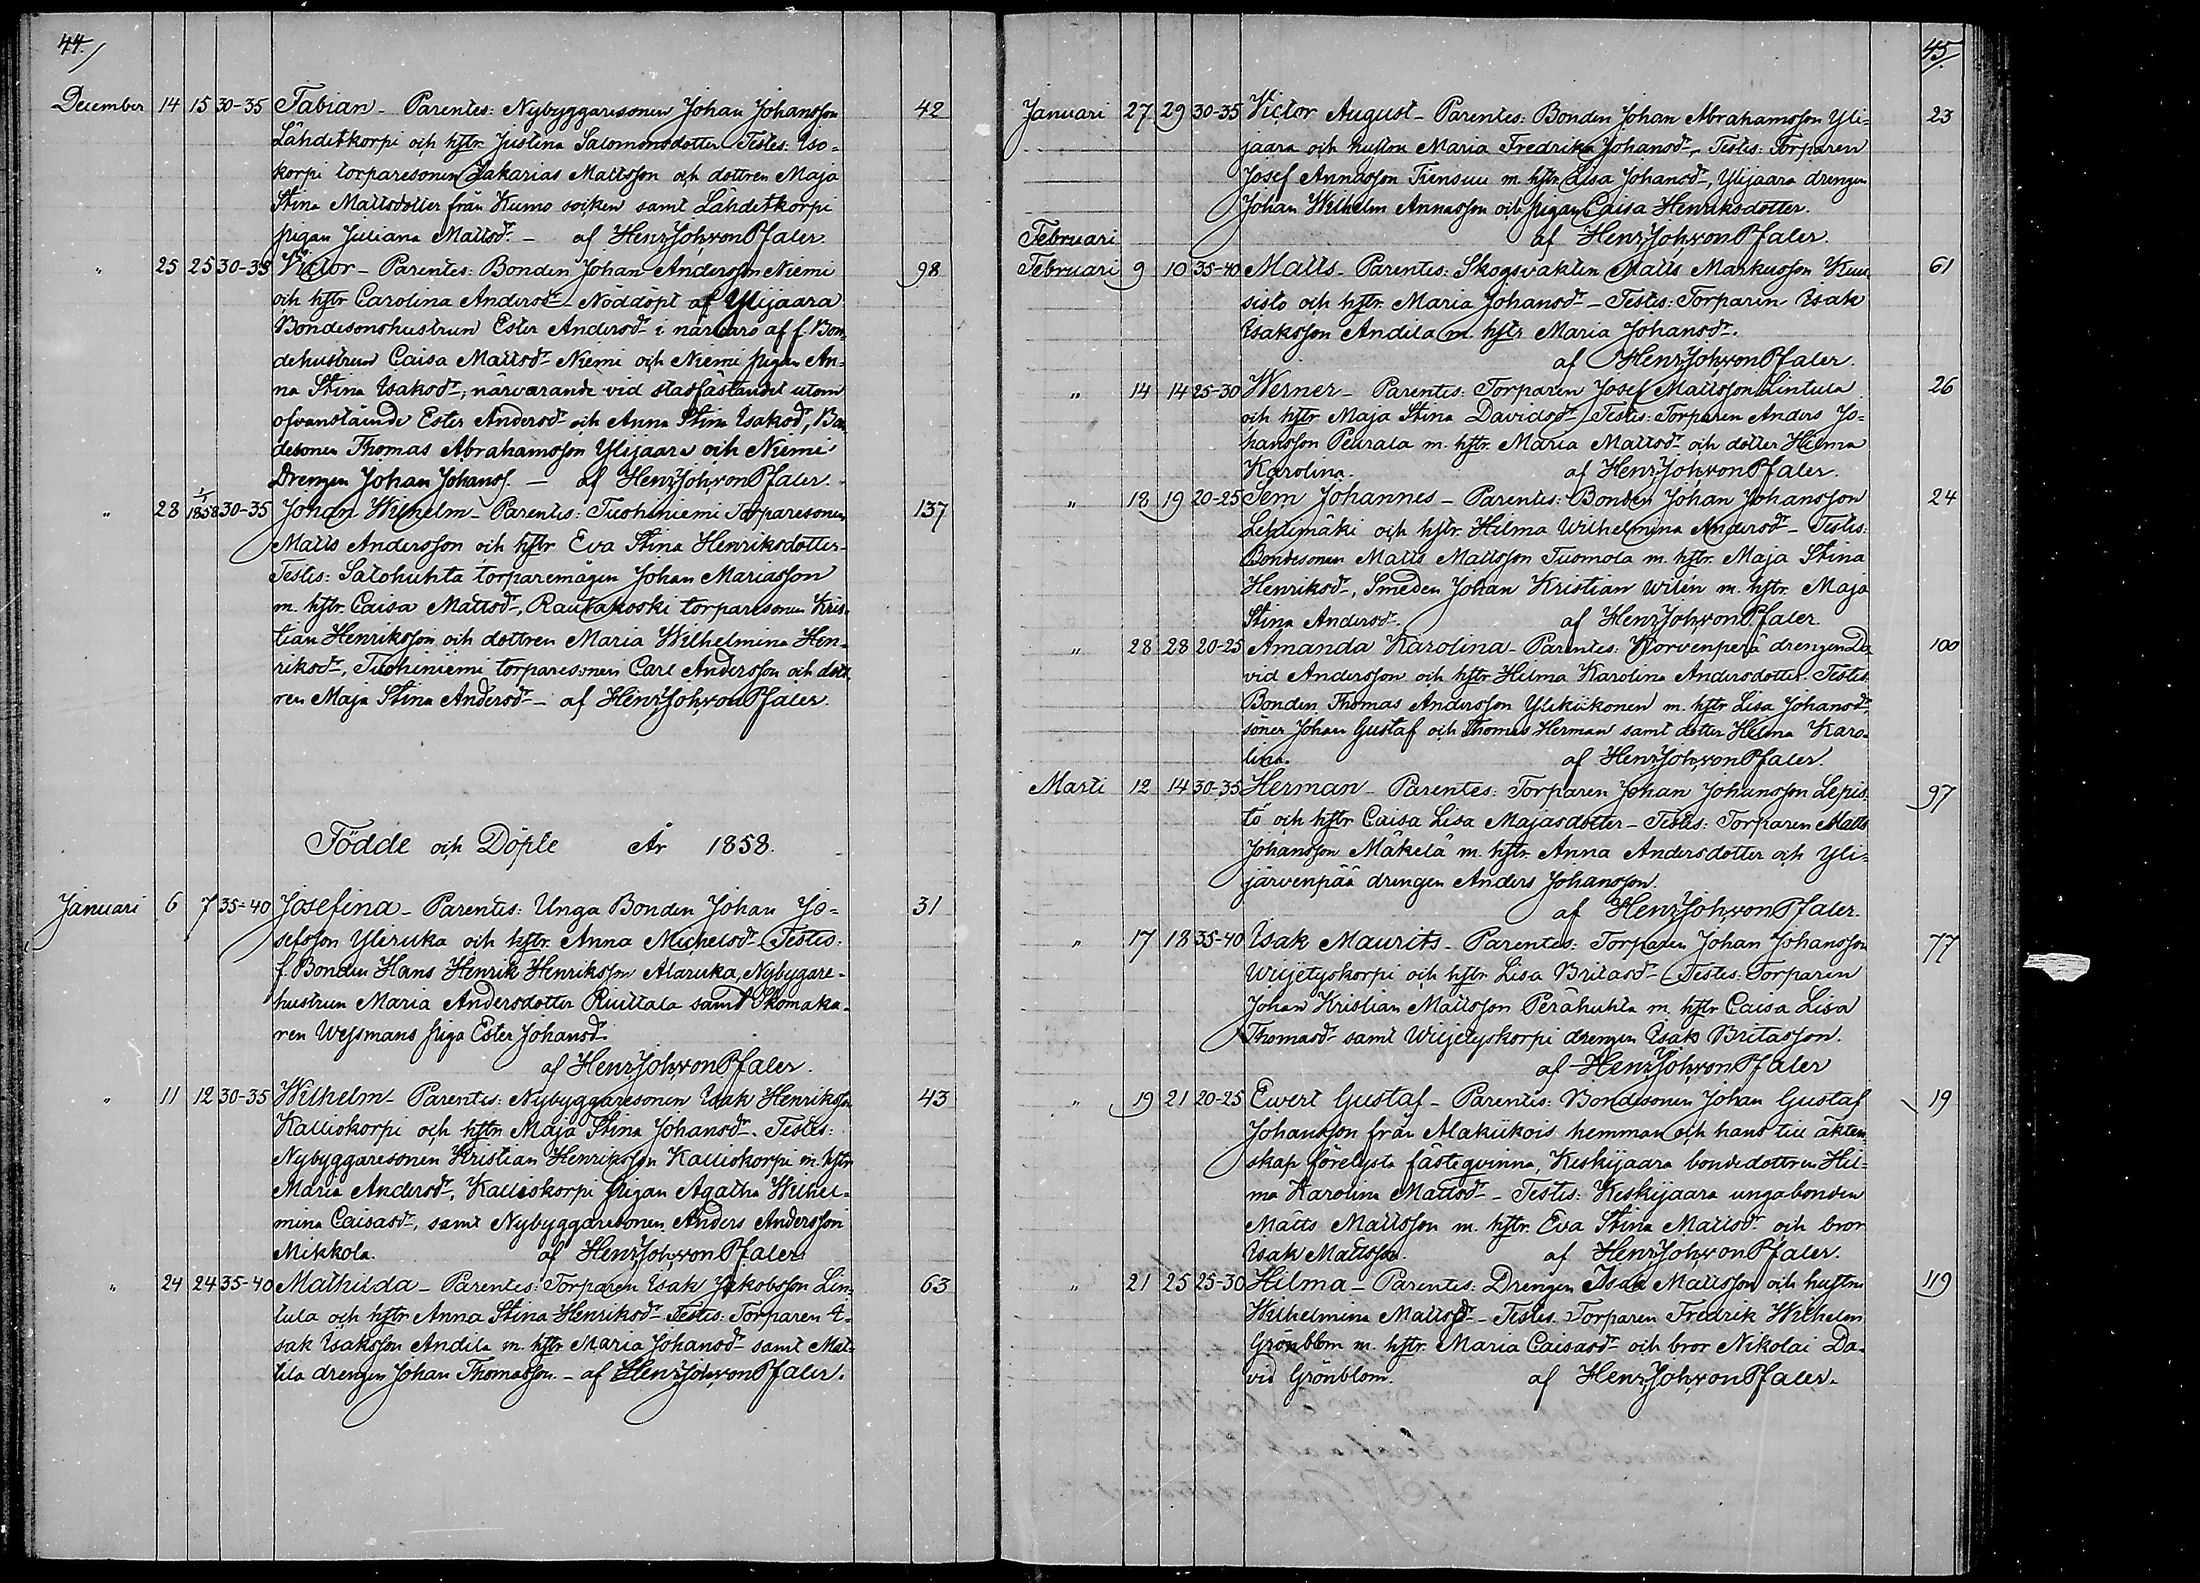 44.
December 14 15 30-35 Fabian - Parentes: Nybyggaresonen Johan Johansson 42
Lähdetkorpi och hstr. Justina Salomonsdotter Testes: Iso=
korpi torparesonen Zakarias Mattsson och dottren Maja
Stina Mattsdotter från Kumo socken samt Lähdetkorpi
pigan Juliana Mattsdr. - af Henr Joh von Pfaler.
" 25 25 30-35 Victor - Parentes: Bonden Johan Andersson Niemi 98
och hstr Carolina Andersdr - Nöddöpt af Ylijaara
Bondesonshustrun Ester Andersdr i närvaro af f. Bon=
dehustrun Caisa Mattsdr Niemi och Niemi pigan An=
na Stina Isaksdr; närvarande vid stadfästandet utom
ofvanstående Ester Andersdr och Anna Stina Isaksd, Bon
desonen Thomas Abrahamsson Ylijaara och Niemi
Drengen Johan Johanss. - af Henr Joh von Pfaler.
" 28 1/1 1858 30-35 Johan Wilhelm - Parentes: Tuohiniemi Torparesonen 137
Matts Andersson och hstr Eva Stina Henriksdotter -
Testes: Satohuhta torparemågen Johan Mariasson
m. hstr. Caisa Mattsdr, Rautakoski torparesonen Kris=
tian Henriksson och dottren Maria Wilhelmina Hen=
riksdr, Tuohiniemi torparesonen Carl Andersson och dott
ren Maja Stina Andersdr - af Henr Joh von Pfaler.
Födde och Döpte År 1858.
Januari 6 7 35-40 Josefina - Parentes: Unga Bonden Johan Jo= 31
sefsson Yliruka och hstr. Anna Michelsdr Testes:
f. Bonden Hans Henrik Henriksson Alaruka, Nybygare=
hustrun Maria Andersdotter Riuttala samt Skomaka=
ren Wessmans piga Ester Johansdr.
af Henr Joh von Pfaler.
" 11 12 30-35 Wilhelm - Parentes: Nybyggaresonen Isak Henriksson 43
Kalliokorpi och hstr Maja Stina Johansdr. Testes:
Nybyggaresonen Kristian Henriksson Kalliokorpi m. hstr
Maria Andersdr, Kalliokorpi pigan Agatha Wilhel=
mina Caisasdr, samt Nybyggaresonen Anders Andersson
Mikkola. af Henr Joh von Pfaler.
" 24 24 35-40 Mathilda - Parentes: Torparen Isak Jakobsson Lin= 63
tula och hstr Anna Stina Henriksdr Testes: Torparen I=
sak Isaksson Andila m. hstr Maria Johansdr samt Mat=
tila drengen Johan Thomasson. - af Henr Joh von Pfaler.
45.
Januari 27 29 30-35 Victor August - Parentes: Bonden Johan Abrahamsson Yli= 23
jaara och hustru Maria Fredrika Johansdr - Testes: Torparen
Josef Annasson Tiensuu m. hstr. Lisa Johansdr, Ylijaara drengen
Johan Wilhelm Annasson och pigan Caisa Henriksdotter.
Februari af Henr Joh von Pfaler.
Februari 9 10 35-40 Matts - Parentes: Skogsvakten Matts Markusson Kuu 61
sisto och hstr. Maria Johansdr - Testes: Torparen Isak
Isaksson Andila m. hstr Maria Johansdr.
af Henr Joh von Pfaler.
" 14 14 25-30 Werner - Parentes: Torparen Josef Mattsson Lintula 26
och hstr Maja Stina Davidsdr Testes: Torparen Anders Jo=
hansson Peurala m. hstr. Maria Mattsdr och dotter Hilma
Karolina. af Henr Joh von Pfaler.
" 18 19 20-25 Sem Johannes - Parentes: Bonden Johan Johansson 24
Lehtimäki och hstr. Hilma Wilhelmina Andersdr - Testes:
Bondesonen Matts Mattsson Tuomola m. hstr. Maja Stina
Henriksdr, Smeden Johan Kristian Wilén m. hstr. Maja
Stina Andersdr. af Henr Joh von Pfaler.
" 28 28 20-25 Amanda Karolina - Parentes: Korvenperä drengen Da= 100
vid Andersson och hstr Hilma Karolina Andersdotter. Testes
Bonden Thomas Andersson Ylikiikonen m. hstr Lisa Johansdr,
söner Johan Gustaf och Thomas Herman samt dotter Hilma Karo=
lina. af Henr Joh von Pfaler.
Marti 12 14 30-35 Herman - Parentes: Torparen Johan Johansson Lepis= 97
tö och hstr Caisa Lisa Majasdotter - Testes: Torparen Matts
Johansson Mäkelä m. hstr. Anna Andersdotter och Yli=
järvenpää drengen Anders Johansson.
af Henr Joh von Pfaler.
" 17 18 35-40 Isak Maurits - Parentes: Torparen Johan Johansson 77
Wiijetyskorpi och hstr. Lisa Britasdr - Testes: Torparen
Johan Kristian Mattsson Perähuhta m. hstr Caisa Lisa
Thomasdr samt Wiijetyskorpi drengen Isak Britasson.
af Henr Joh von Pfaler
" 19 21 20-25 Evert Gustaf - Parentes: Bondesonen Johan Gustaf 19
Johansson från Alakiikois hemman och hans till äkten
skap förelysta fästeqvinna, Keskijaara bondedottren Hil=
ma Karolina Mattsdr - Testes: Keskijaara ungabonden
Matts Mattsson m. hstr. Eva Stina Mattsdr och bror
Isak Mattsson. af Henr Joh von Pfaler.
" 21 25 25-30 Hilma - Parentes: Drengen Isak Mattsson och hustru 119
Wilhelmina Mattsdr - Testes: Torparen Fredrik Wilhelm
Grönblom m. hstr. Maria Caisasdr och bror Nikolai Da=
vid Grönblom. af Henr Joh von Pfaler.